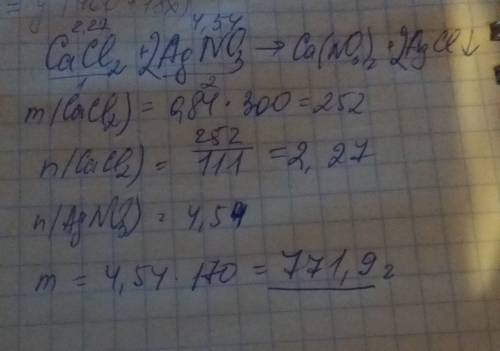 2,27 4,54
CaCl₂ + 2AgNO₃ → Ca(NO₃)₂ + 2AgCl↓
m(CaCl₂) = 0,84 · 300 = 252
n(CaCl₂) = 252/111 = 2,27
n(AgNO₃) = 4,54
m = 4,54 · 170 = 771,9 г